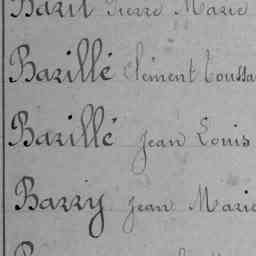 Baril Pierre Marie
Barillé Clément Toussa
Barillé Jean Louis
Barry Jean Marie